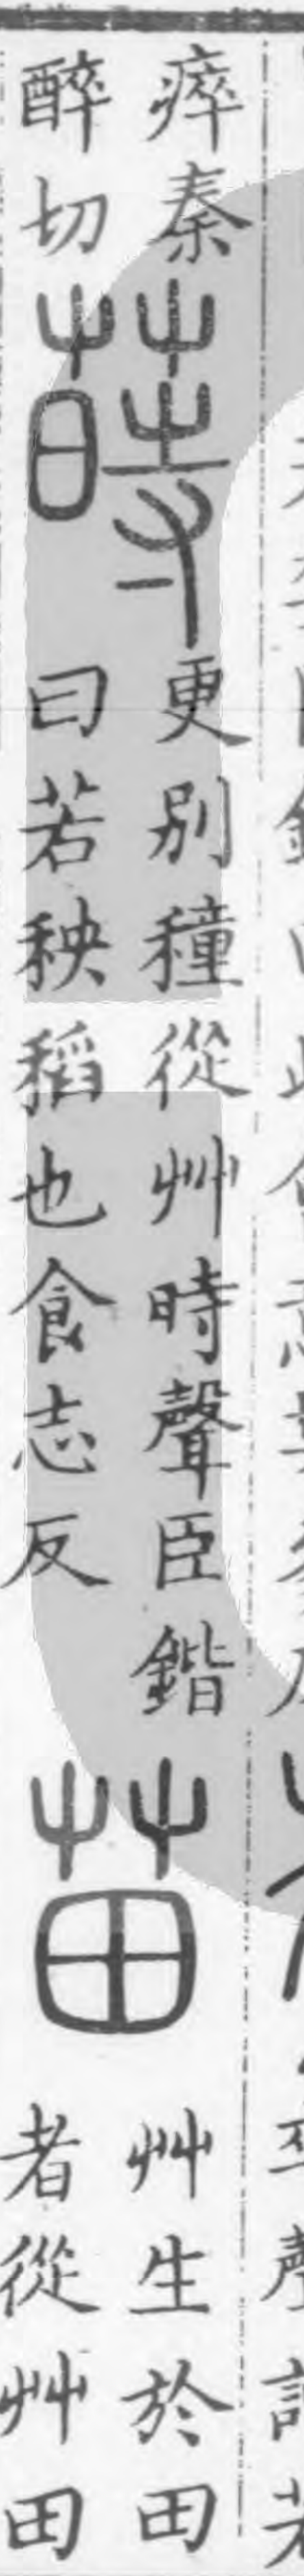 瘁秦
醉切
蒔
更別種從艸時聲臣鍇
曰若秧稻也食志反
苗
艸生於田
者從艸田